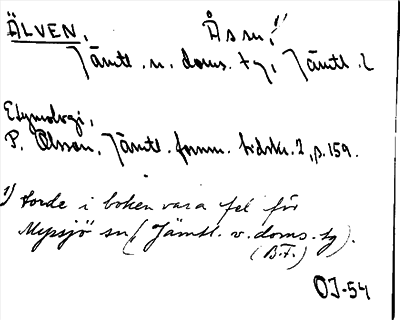 ÄLVEN. Ås sn.¹⁾
Jämtl. n. doms. tg, Jämtl. l
Etymologi.
P. Olsson, Jämtl. fornm. tidskr. 2, p. 159.
1) torde i boken vara fel för
Myssjö sn (Jämtl. v. doms. tg).
(B.F.)
OJ-54